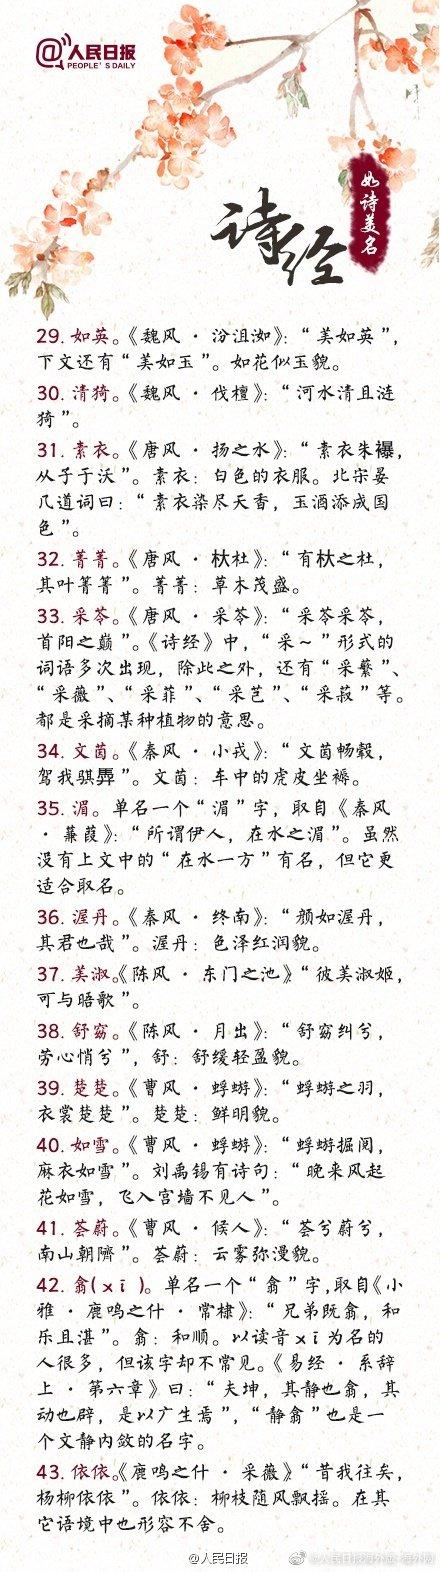 @人民日报
PEOPLE'S DAILY
如诗美名
诗经
29. 如英。《魏风 · 汾沮洳》：“美如英”，
下文还有“美如玉”。如花似玉貌。
30. 清猗。《魏风 · 伐檀》：“河水清且涟
猗”。
31. 素衣。《唐风 · 扬之水》：“素衣朱襮，
从子于沃”。素衣：白色的衣服。北宋晏
几道词曰：“素衣染尽天香，玉酒添成国
色”。
32. 菁菁。《唐风 · 杕杜》：“有杕之杜，
其叶菁菁”。菁菁：草木茂盛。
33. 采苓。《唐风 · 采苓》：“采苓采苓，
首阳之巅”。《诗经》中，“采～”形式的
词语多次出现，除此之外，还有“采蘩”、
“采薇”、“采菲”、“采艺”、“采菽”等。
都是采摘某种植物的意思。
34. 文茵。《秦风 · 小戎》：“文茵畅毂，
驾我骐馵”。文茵：车中的虎皮坐褥。
35. 湄。单名一个“湄”字，取自《秦风
· 蒹葭》：“所谓伊人，在水之湄”。虽然
没有上文中的“在水一方”有名，但它更
适合取名。
36. 渥丹。《秦风 · 终南》：“颜如渥丹，
其君也哉”。渥丹：色泽红润貌。
37. 美淑。《陈风 · 东门之池》“彼美淑姬，
可与晤歌”。
38. 舒窈。《陈风 · 月出》：“舒窈纠兮，
劳心悄兮”，舒：舒缓轻盈貌。
39. 楚楚。《曹风 · 蜉蝣》：“蜉蝣之羽，
衣裳楚楚”。楚楚：鲜明貌。
40. 如雪。《曹风 · 蜉蝣》：“蜉蝣掘阅，
麻衣如雪”。刘禹锡有诗句：“晚来风起
花如雪，飞入宫墙不见人”。
41. 荟蔚。《曹风 · 候人》：“荟兮蔚兮，
南山朝隮”。荟蔚：云雾弥漫貌。
42. 翕(xī)。单名一个“翕”字，取自《小
雅 · 鹿鸣之什 · 常棣》：“兄弟既翕，和
乐且湛”。翕：和顺。以读音xī为名的
人很多，但该字却不常见。《易经 · 系辞
上 · 第六章》曰：“夫坤，其静也翕，其
动也辟，是以广生焉”，“静翕”也是一
个文静内敛的名字。
43. 依依。《鹿鸣之什 · 采薇》“昔我往矣，
杨柳依依”。依依：柳枝随风飘摇。在其
它语境中也形容不舍。
@人民日报
@人民日报海外版-海外网